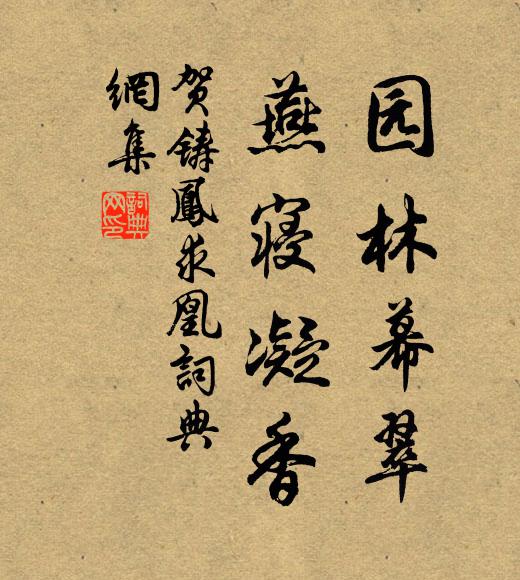 园林幕翠
燕寝凝香
贺铸鳳求凰詞典
網集
詞典网印